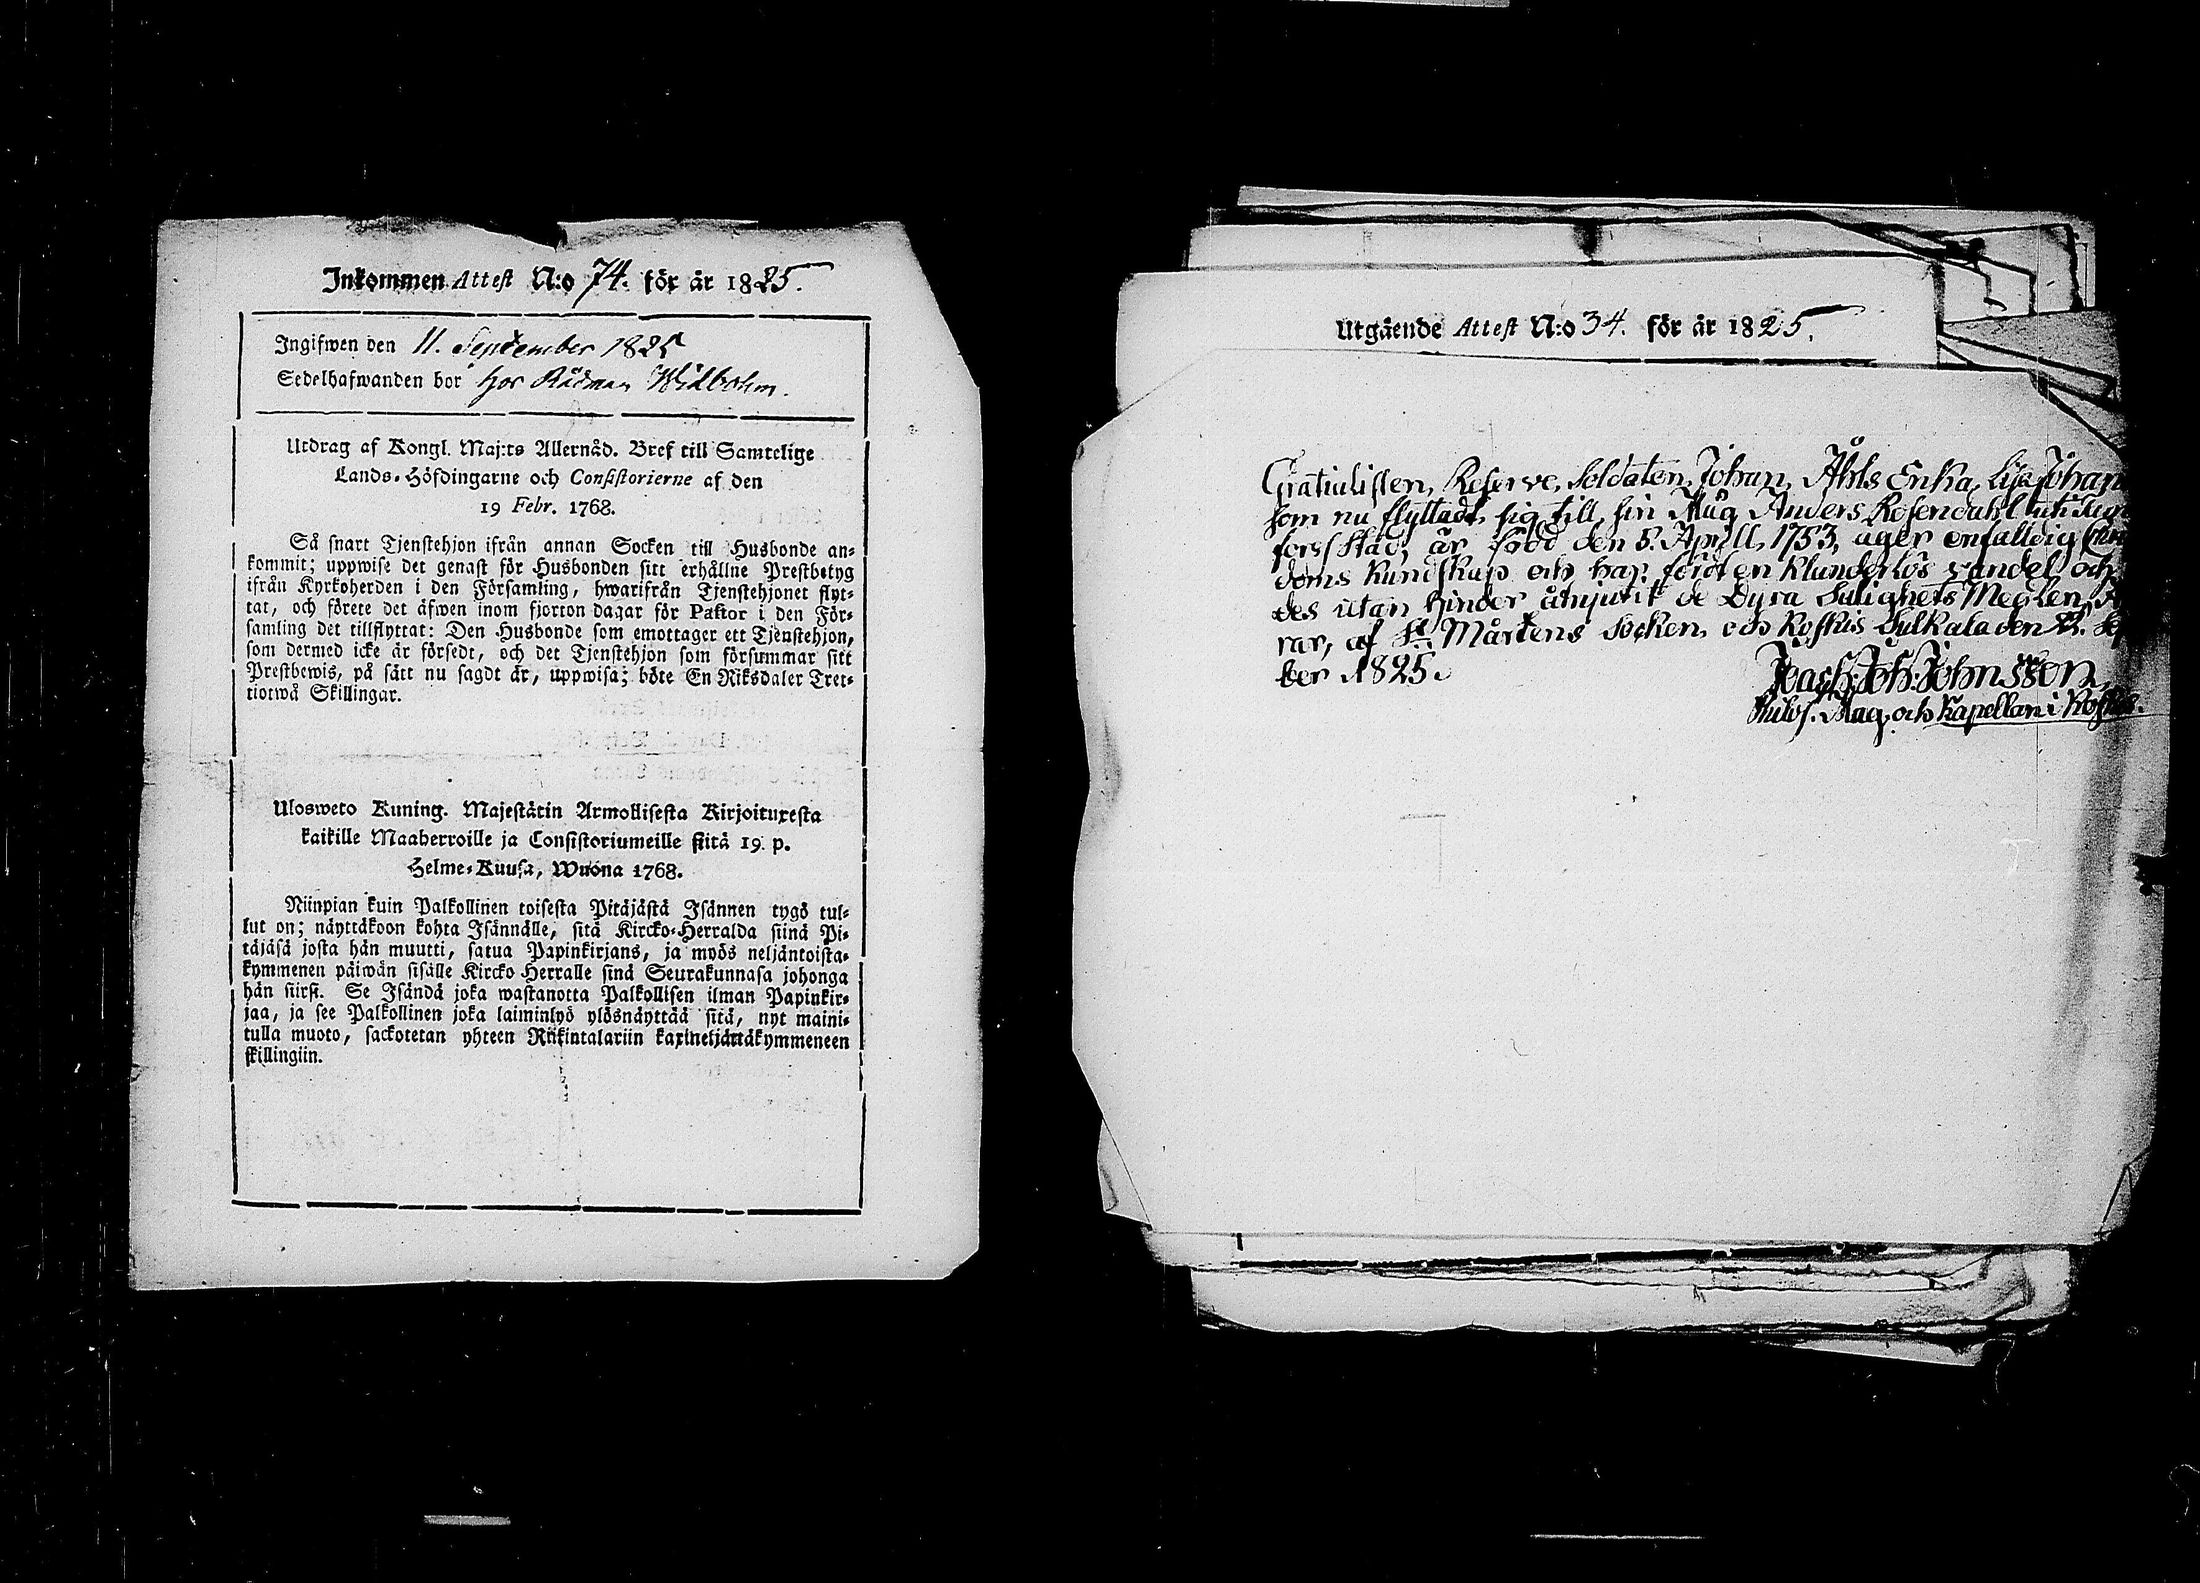 Inkommen Attest N:o 74. för år 1825.
Ingifwen den 11. September 1825
Sedelhafwanden bor hos Rådman Widbohm.
Utdrag af Kongl. Maj:ts Allernåd. Bref till Samtelige
Lands-Höfdingarne och Consistorierne af den
19 Febr. 1768.
Så snart Tjenstehjon ifrån annan Socken till Husbonde an-
kommit; uppwise det genast för Husbonden sitt erhållne Prestbetyg
ifrån Kyrkoherden i den Församling, hwarifrån Tjenstehjonet flyt-
tat, och förete det äfwen inom fjorton dagar för Pastor i den För-
samling det tillflyttat: Den Husbonde som emottager ett Tjenstehjon,
som dermed icke är försedt, och det Tjenstehjon som försummar sitt
Prestbewis, på sätt nu sagdt är, uppwisa; böte En Riksdaler Tret-
tiotwå Skillingar.
Ulosweto Kuning. Majestätin Armollisesta Kirjoituxesta
kaikille Maaherroille ja Consistoriumeille siitä 19. p.
Helme-Kuusa, Wuona 1768.
Niinpian kuin Palkollinen toisesta Pitäjästä Isännen tygö tul-
lut on; näyttäkoon kohta Isännälle, sitä Kircko-Herralda siinä Pi-
täjäsä josta hän muutti, satua Papinkirjans, ja myös neljäntoista-
kymmenen päiwän sisälle Kircko Herralle sinä Seurakunnasa johonga
hän siirsi. Se Isändä joka wastanotta Palkollisen ilman Papinkir-
jaa, ja see Palkollinen joka laiminlyö ylösnäyttää sitä, nyt maini-
tulla muoto, sackotetan yhteen Riikintalariin kaxineljättäkymmeneen
skillingiin.
Utgående Attest N:o 34. för år 1825.
Gratialisten, Reserve, Soldaten, Johan, Åhls Enka, Lisa Johan
som nu flyttadt sig till sin Måg Anders Rosendahl uti
forss Stad, är född den 5. Aprill, 1753, äger enfalldig
doms kundskap och har fördt en klanderlös vandel och
des utan hinder åtnjutit de Dyra Salighets Medlen,
rar, af St. Mårtens Socken, och Koskis Sulkala den
ber 1825.
Joach: Joh: Johnsson,
Philos. Mag. och Kapellan i Koskis.